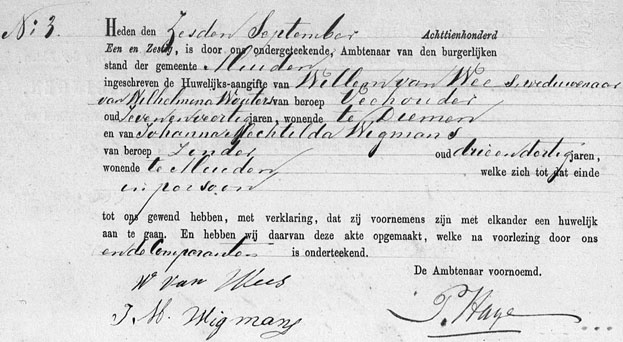 No: 3.
Heden den Zesden September Achttienhonderd
Een en Zestig, is door ons ondergeteekende, Ambtenaar van den burgerlijken
stand der gemeente Muiden
ingeschreven de Huwelijks-aangifte van Willem van Wees weduwenaar
van Wilhelmina Wouters van beroep Veehouder
oud Zeven en veertig jaren, wonende te Diemen
en van Johanna Mechtilda Wigmans
van beroep Zonder oud drie en dertig jaren,
wonende te Muiden welke zich tot dat einde
in persoon
tot ons gewend hebben, met verklaring, dat zij voornemens zijn met elkander een huwelijk
aan te gaan. En hebben wij daarvan deze akte opgemaakt, welke na voorlezing door ons
en de Comparanten is onderteekend.
De Ambtenaar voornoemd.
W van Wees
J. M. Wigmans
P. Haye